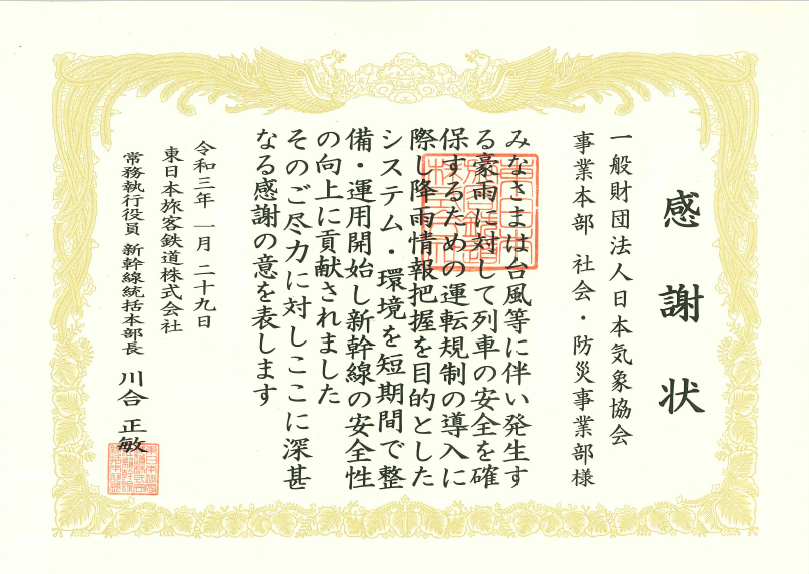 感謝状
一般財団法人日本気象協会
事業本部 社会・防災事業部様
みなさまは台風等に伴い発生す
る豪雨に対して列車の安全を確
保するための運転規制の導入に
際し降雨情報把握を目的とした
システム・環境を短期間で整
備・運用開始し新幹線の安全性
の向上に貢献されました
そのご尽力に対しここに深甚
なる感謝の意を表します
令和三年一月二十九日
東日本旅客鉄道株式会社
常務執行役員 新幹線統括本部長 川合 正敏